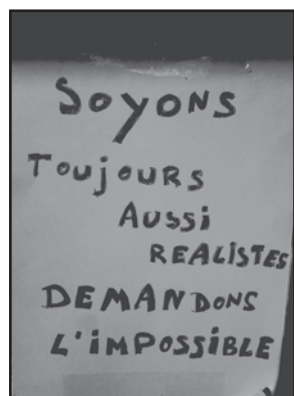 SOYONS
TOUJOURS
AUSSI
REALISTES
DEMANDONS
L'IMPOSSIBLE